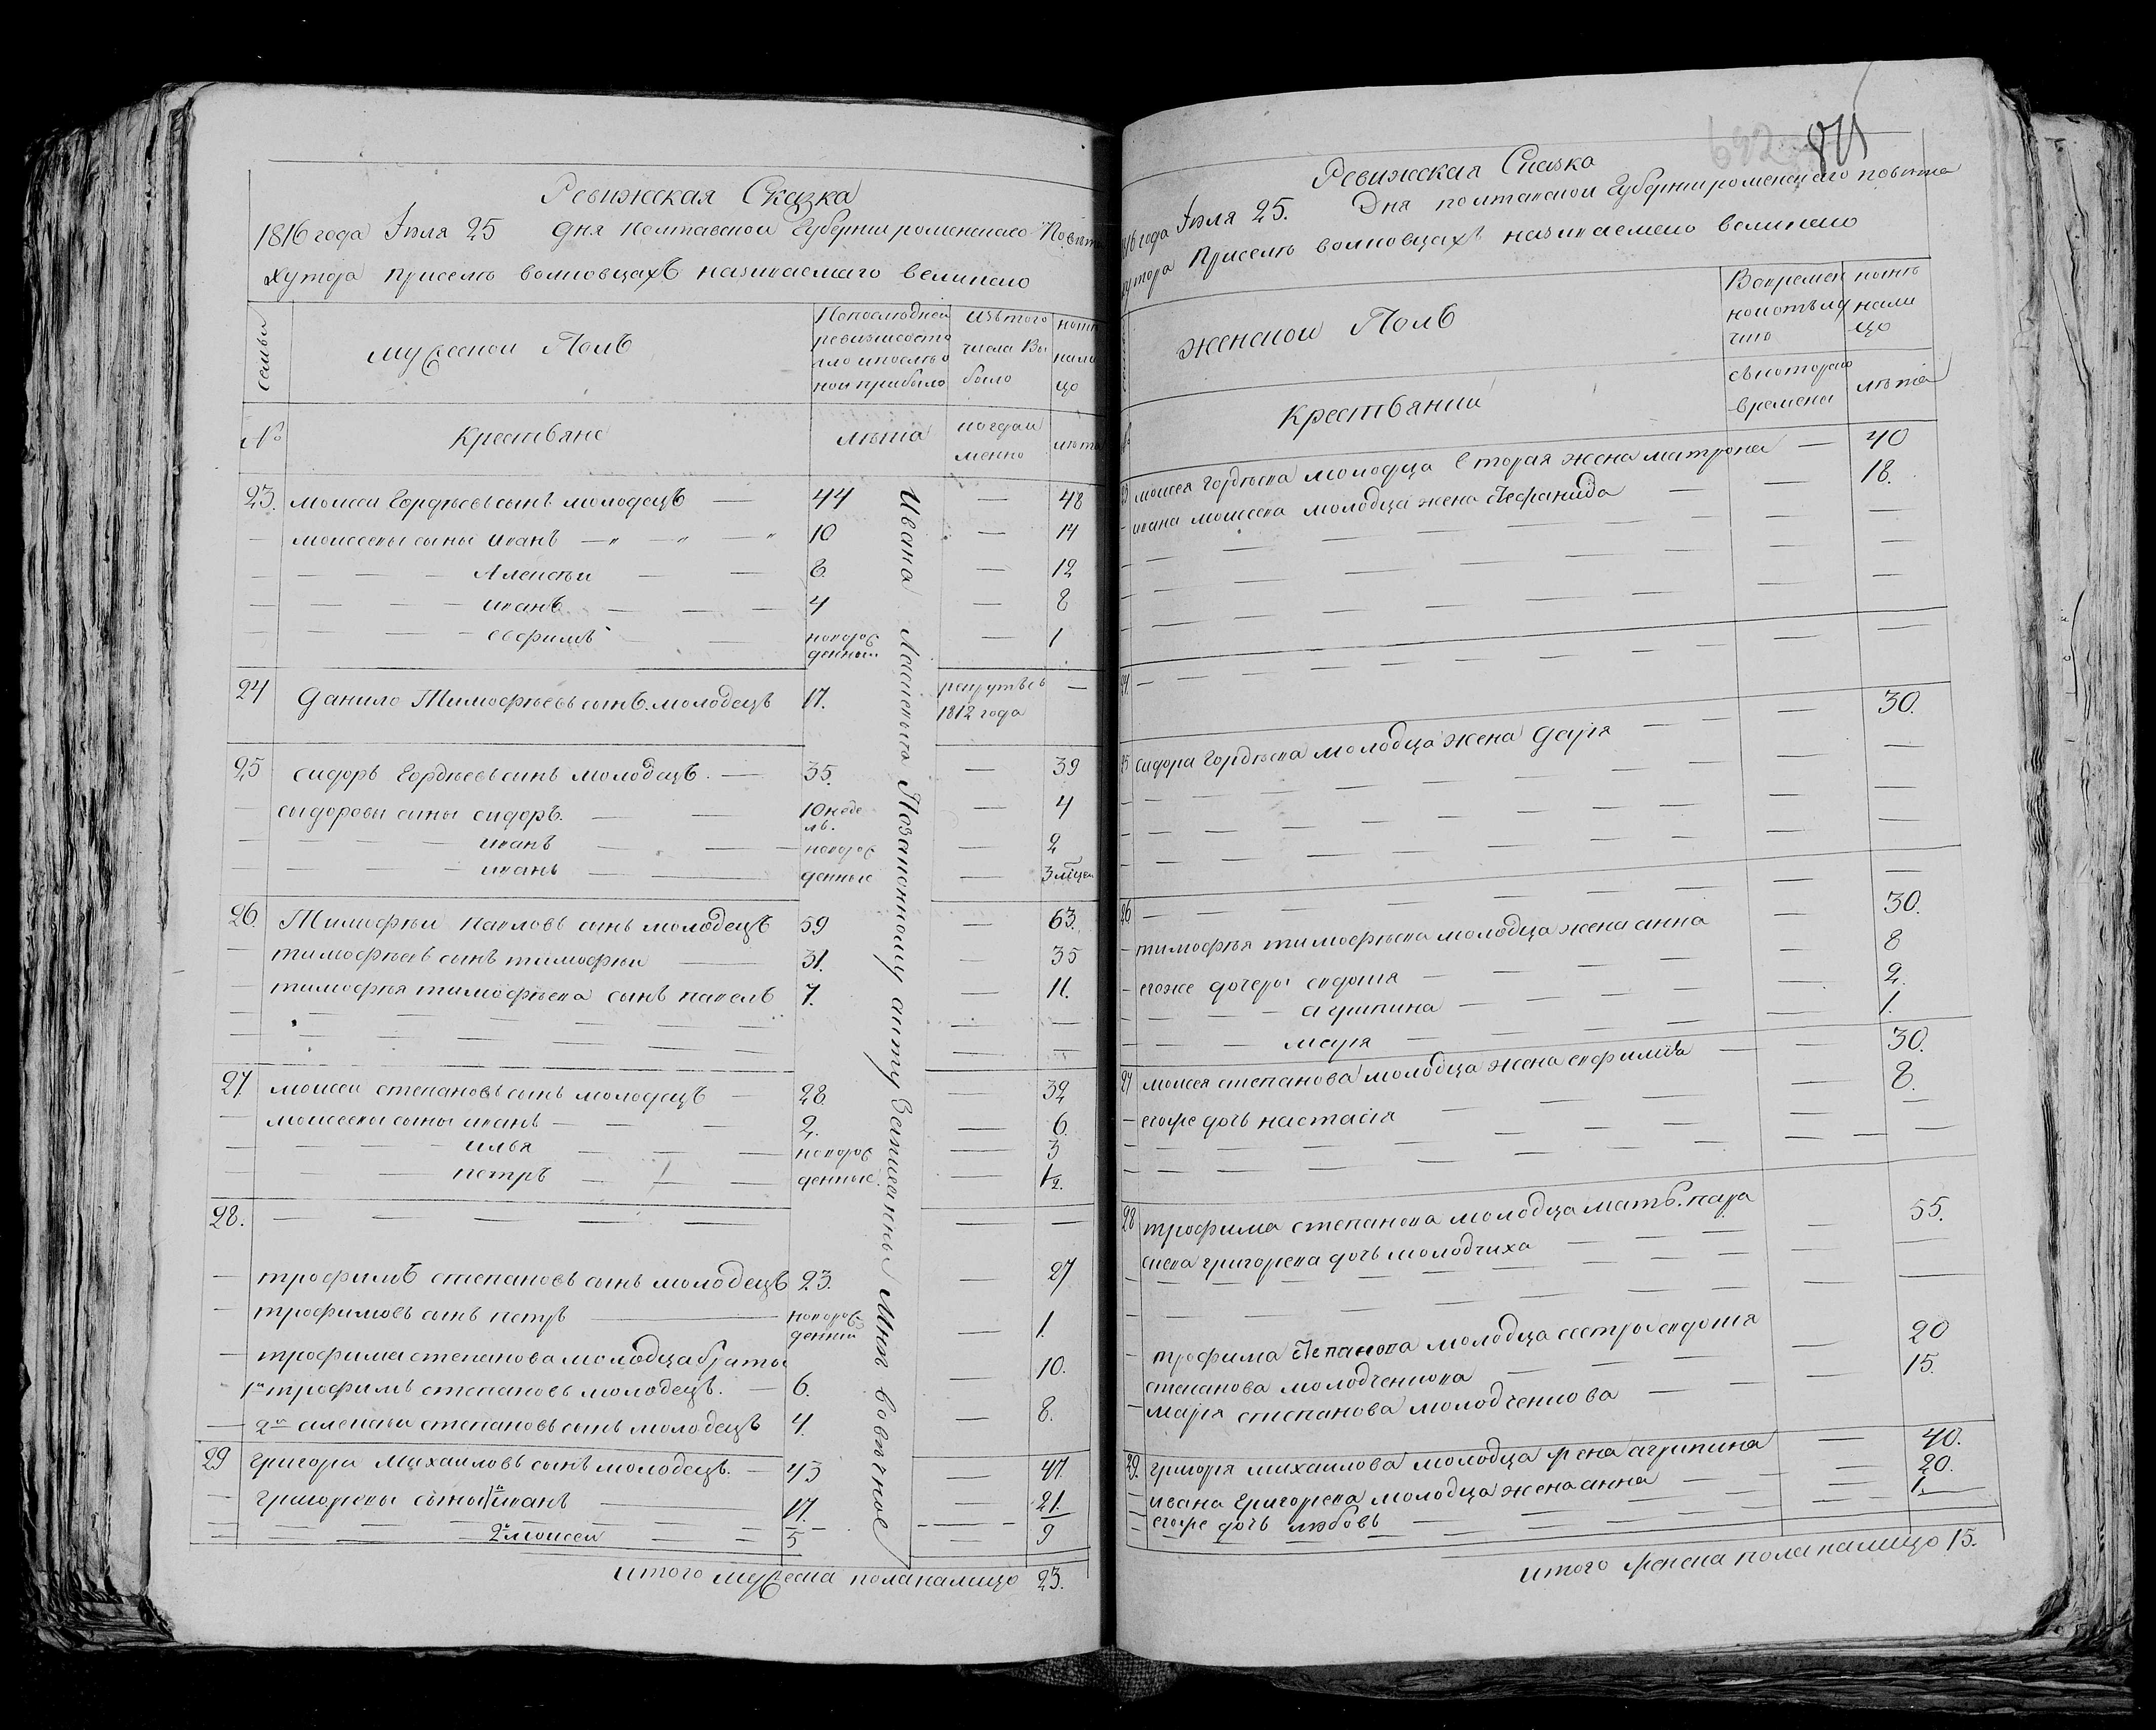 Ревижская Сказка
1816 года Июля 25 дня полтавской Губернии роменского Повѣта
хутора присемъ волковцахъ називаемаго великого
семьи
мужеской Полъ
Попослѣдней ревизиі состояло ипослѣ оной прибыло
Изътого числа Выбыло
ноне налицо
№
Крестьяне
лѣта
когда именно
лѣта
23. моисей Гордѣевъ синъ молодецъ — 44 — 48
— моисеевы сины иванъ — 10 — 14
— Алексѣй — 8. — 12
— иванъ — 4 — 8
— ефимъ — новорожденный — 1
24 данило Тимофѣевъ синъ молодецъ 17. рекрутѣ съ 1812 года —
25 сидоръ Гордѣевъ синъ молодецъ. — 35. — 39
сыдоровы сины сидоръ. — 10 недель. — 4
— иванъ — новорож — 2
— иванъ — денные — 3 мцей
26. Тимофѣй павловъ синъ молодецъ 59 — 63.
— тимофѣевъ синъ тимофѣй — 31. — 35
— тимофѣя тимофѣева синъ павелъ 7. — 11.
27. моисей степановъ синъ молодецъ — 28. — 32
— моисеевы сины иванъ — 2. — 6.
— илья — новорож — 3
— петръ — денные. — 1/2.
28. — — —
— трофимъ степановъ синъ молодецъ 23. — 27
— трофимовъ синъ петръ — новорожденний — 1.
— трофима степанова молодца браты
1й трофимъ степановъ молодецъ. — 6. — 10.
— 2й алексѣй степановъ синъ молодецъ 4. — 8.
29 григорій Михайловъ синъ молодецъ. — 43 — 47.
— григориевы сины 1й иванъ — 17. — 21.
— 2й моисей — 5 — 9
итого мужеска пола налицо 23.
Ивана Моисеенъка Позаконному акту Записанны Мнѣ вовѣчное
692
Ревижская Сказка
1816 года Июля 25. Дня полтавской Губернии роменскаго повѣта
хутора присемъ волковцахъ називаемаго великого
женской Полъ
Вовременной отълучкѣ
ноне налицо
Крестьянки
съкоторого времени
лѣта
23 моисея гордѣева молодца вторая жена матрона — 40
— ивана моисеева молодца жена стефанида — 18.
24. — — —
25 сидора гордѣева молодца жена дарія — 30.
26 — — —
— тимофѣя тимофѣева молодца жена анна — 30.
— егоже дочеры евдокія — 8
— агрипина — 2.
— марія — 1.
27 моисея степанова молодца жена евфиміа — 30.
— егоже дочь настасія — 8.
28 трофима степанова молодца мать
григорева дочь молодчиха — 55.
— трофима степанова молодца сестры евдокія
степанова молодченкова — 20
— марія степанова молодченкова — 15.
29. григорія михайлова молодца жена агрипина — 40.
— ивана Григорева молодца жена анна — 20.
— егоже дочь любовь — 1.
итого женска пола налицо 15.